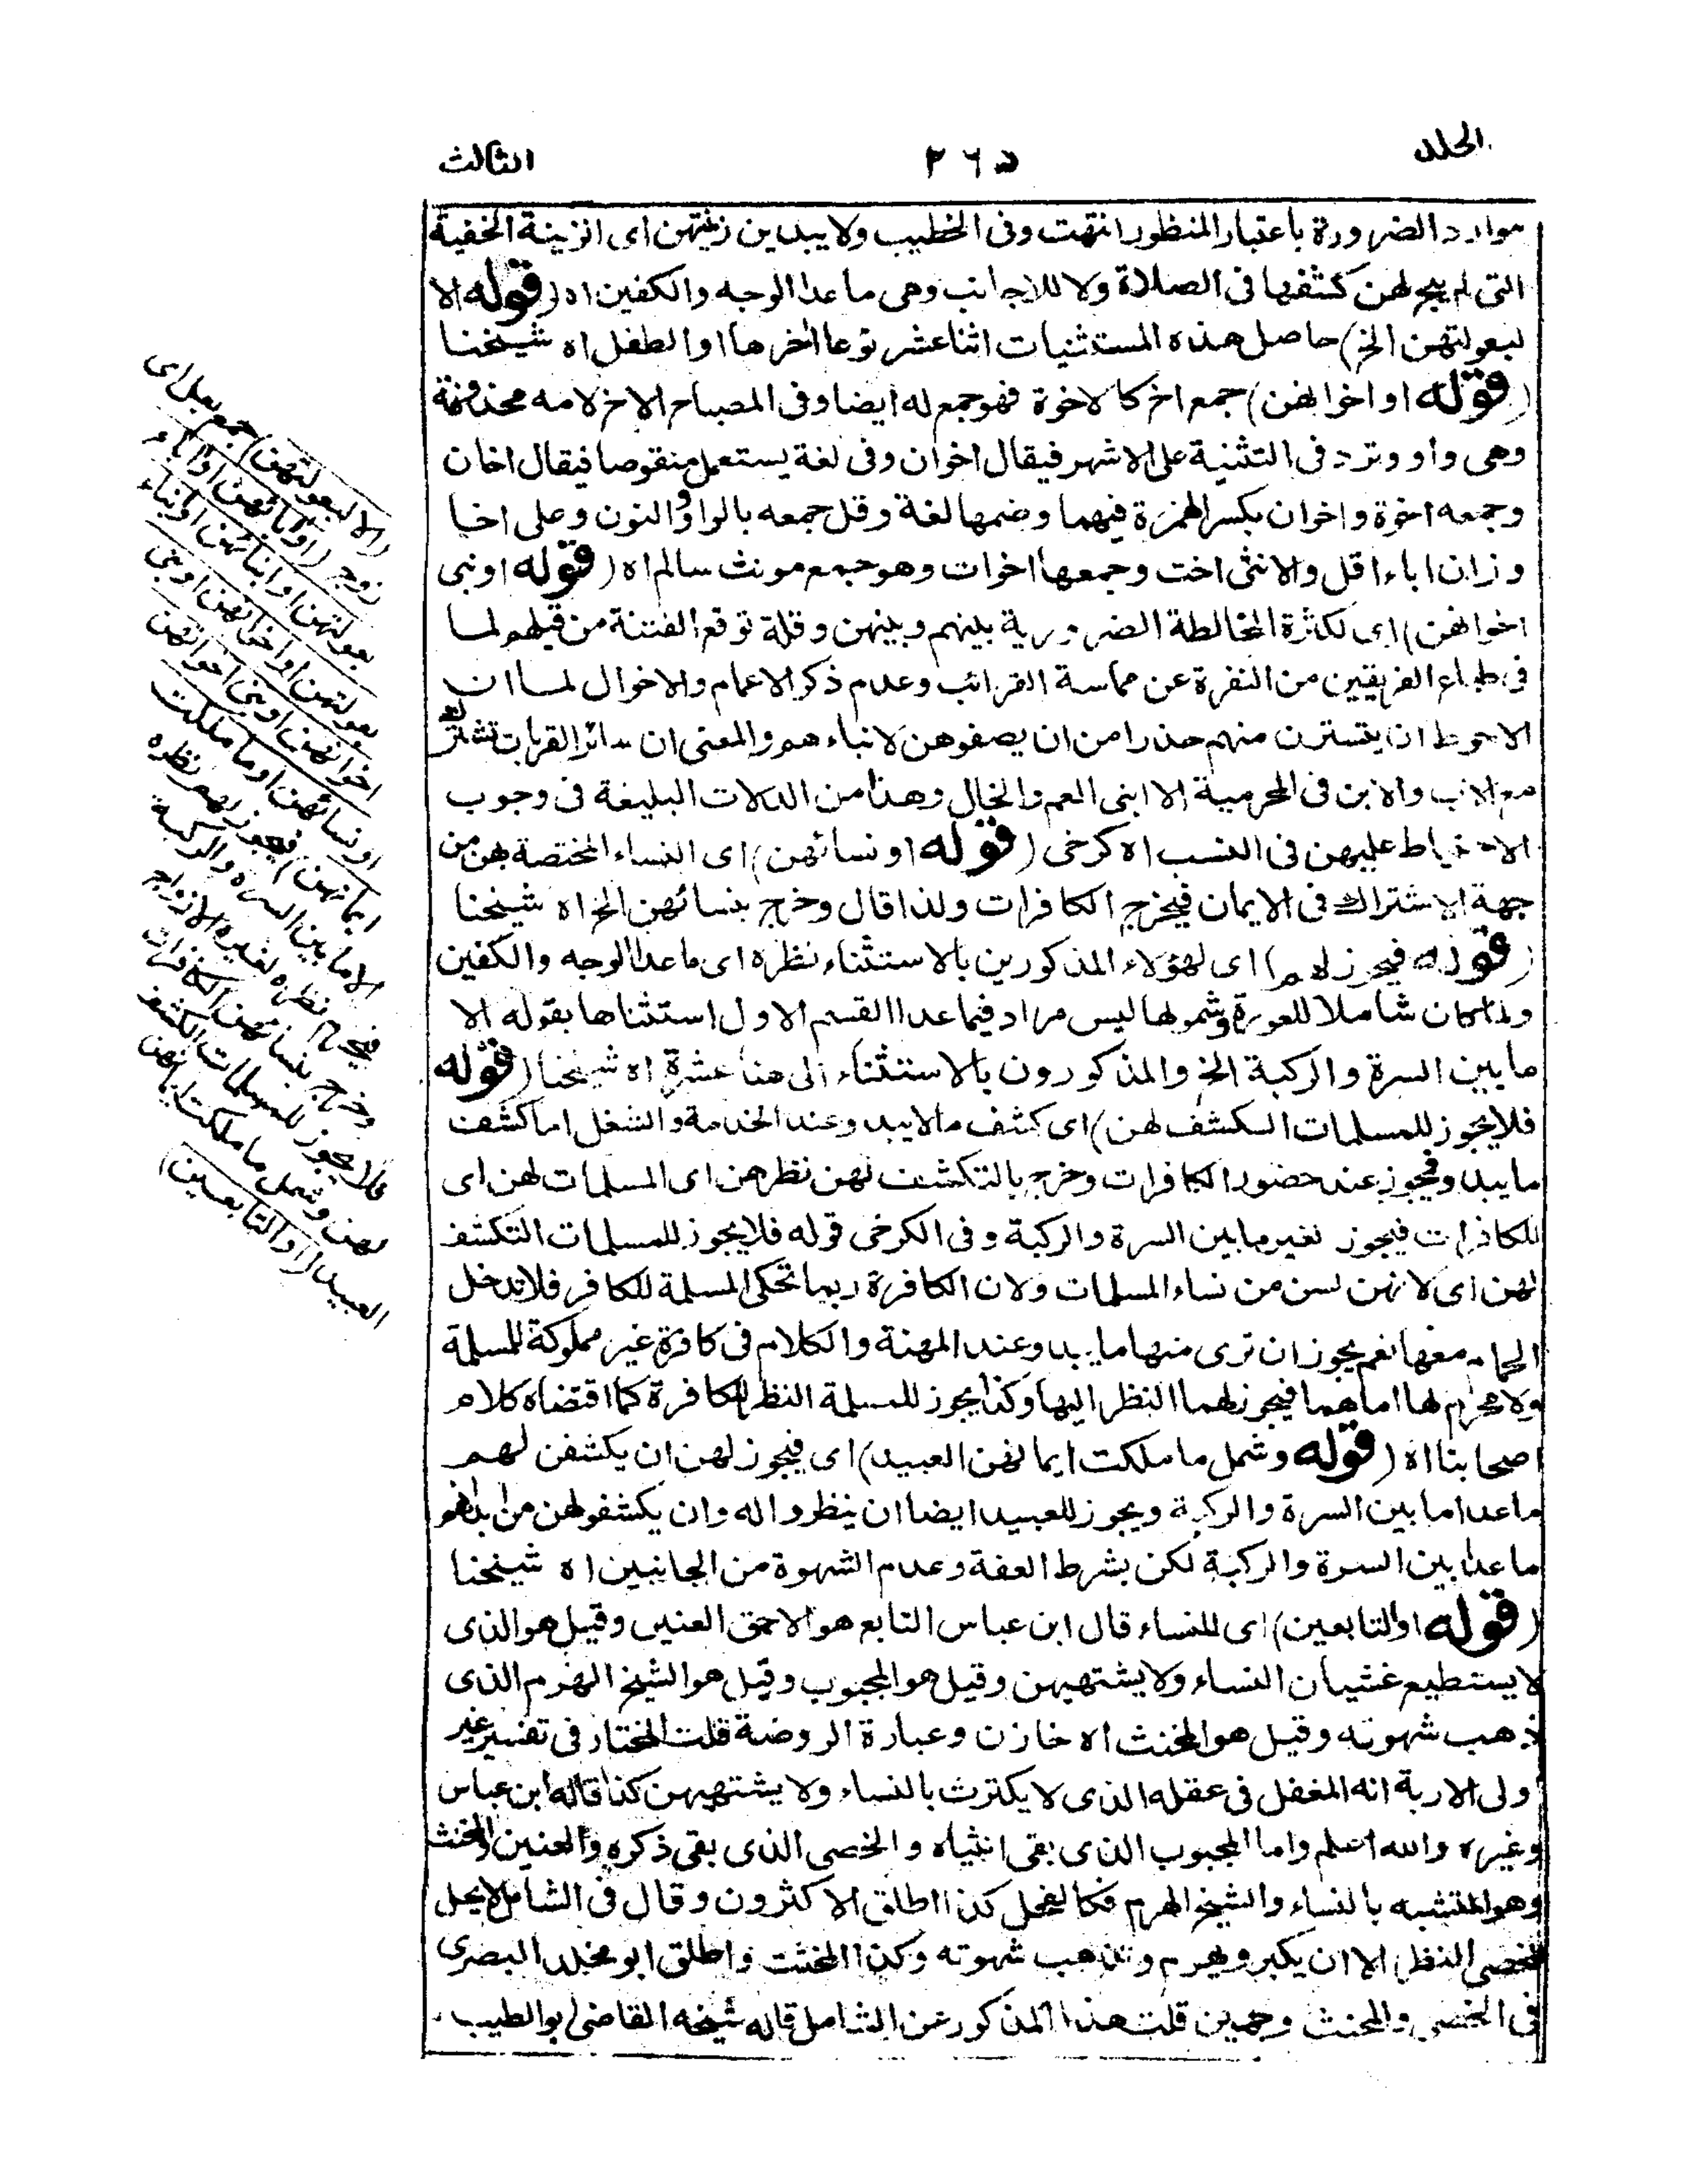 الجلد ٢٦٥ الثالث
موارد الضرورة باعتبار المنظور انتهت وفى الخطيب ولا يبدين زينتهن اى الزينة الخفية
التى لم يبح لهن كشفها فى الصلاة ولا للاجانب وهى ماعدا الوجه والكفين اه (قوله الا
لبعولتهن الخ) حاصل هذه المستثنيات اثنا عشر نوعا اخرها او الطفل اه شيخنا
(قوله او اخوانهن) جمع اخ كالاخوة فهو جمع له ايضا وفى المصباح الاخ لامه محذوفة
وهى واو وترد فى التثنية على الاشهر فيقال اخوان وفى لغة يستعمل منقوصا فيقال اخان
وجمعه اخوة واخوان بكسر الهمزة فيهما وضمها لغة وقل جمعه بالواو والنون وعلى اخا
وزان اباء اقل والانثى اخت وجمعها اخوات وهو جمع مونث سالم اه (قوله او بنى
اخوانهن) اى لكثرة المخالطة الضرورية بينهم وبينهن وقلة توقع الفتنة من قبلهم لما
فى طباع الفريقين من النفرة عن مماسة القرائب وعدم ذكر الاعمام والاخوال لما ان
الاحوط ان يتسترن منهم حذرا من ان يصفوهن لابناءهم والمعنى ان سائر القربات تشترك
مع الاب والابن فى المحرمية الا ابنى العم والخال وهذا من الدلالات البليغة فى وجوب
الاحتياط عليهن فى النسب اه كرخى (قوله او نسائهن) اى النساء المختصة بهن من
جهة الاشتراك فى الايمان فيخرج الكافرات ولذا قال وخرج بنسائهن الخ اه شيخنا
(قوله فيجوز لهم) اى لهؤلاء المذكورين بالاستثناء نظره اى ماعدا الوجه والكفين
ولما كان شاملا للعورة وشمولها ليس مراد فيما عدا القسم الاول استثناها بقوله الا
ما بين السرة والركبة الخ والمذكورون بالاستثناء الى هنا عشرة اه شيخنا (قوله
فلا يجوز للمسلمات الكشف لهن) اى كشف مالا يبدو عند الخدمة والشغل اما كشف
ما يبدو فيجوز عند حضور الكافرات وخرج بالتكشف لهن نظرهن اى المسلمات لهن اى
للكافرات فيجوز لغير ما بين السرة والركبة وفى الكرخى قوله فلا يجوز للمسلمات التكشف
لهن اى لانهن لسن من نساء المسلمات ولان الكافرة ربما تحكى المسلمة للكافر فلا تدخل
الحمام معها نعم يجوز ان ترى منها ما يبدو عند المهنة والكلام فى كافرة غير مملوكة للمسلمة
ولا محرم لها اما هما فيجوز لهما النظر اليها وكذا يجوز للمسلمة النظر للكافرة كما اقتضاه كلام
اصحابنا اه (قوله وشمل ما ملكت ايمانهن العبيد) اى فيجوز لهن ان يكشفن لهم
ماعدا ما بين السرة والركبة ويجوز للعبيد ايضا ان ينظروا له وان يكشفوا لهن من ابدانهم
ماعدا بين السرة والركبة لكن بشرط العفة وعدم الشهوة من الجانبين اه شيخنا
(قوله او التابعين) اى للنساء قال ابن عباس التابع هو الاحمق العنين وقيل هو الذى
لا يستطيع غشيان النساء ولا يشتهيهن وقيل هو المجبوب وقيل هو الشيخ الهرم الذى
ذهب شهوته وقيل هو المخنث اه خازن وعبارة الروضة قلت المختار فى تفسير غير
اولى الاربة انه المغفل فى عقله الذى لا يكترث بالنساء ولا يشتهيهن كذا قاله ابن عباس
وغيره والله اعلم واما المجبوب الذى بقى انثياه والخصى الذى بقى ذكره والعنين والمخنث
وهو المتشبه بالنساء والشيخ الهرم فكالفحل كذا اطلق الاكثرون وقال فى الشامل لا يحل
للخصى النظر الا ان يكبر ويهرم وتذهب شهوته وكذا المخنث واطلق ابو مخلد البصرى
فى الخصى والمخنث وجهين قلت هذا المذكور عن الشامل قاله شيخه القاضى ابو الطيب
(الا لبعولتهن) جمع بعل اى
زوج (او آبائهن او آباء
بعولتهن او ابنائهن او ابناء
بعولتهن او اخوانهن او بنى
اخوانهن او بنى اخواتهن
او نسائهن او ما ملكت
ايمانهن) فيجوز لهم نظره
الا ما بين السرة والركبة
فيحرم نظره لغير الازواج
وخرج بنسائهن الكافرات
فلا يجوز للمسلمات الكشف
لهن وشمل ما ملكت ايمانهن
العبيد (او التابعين)